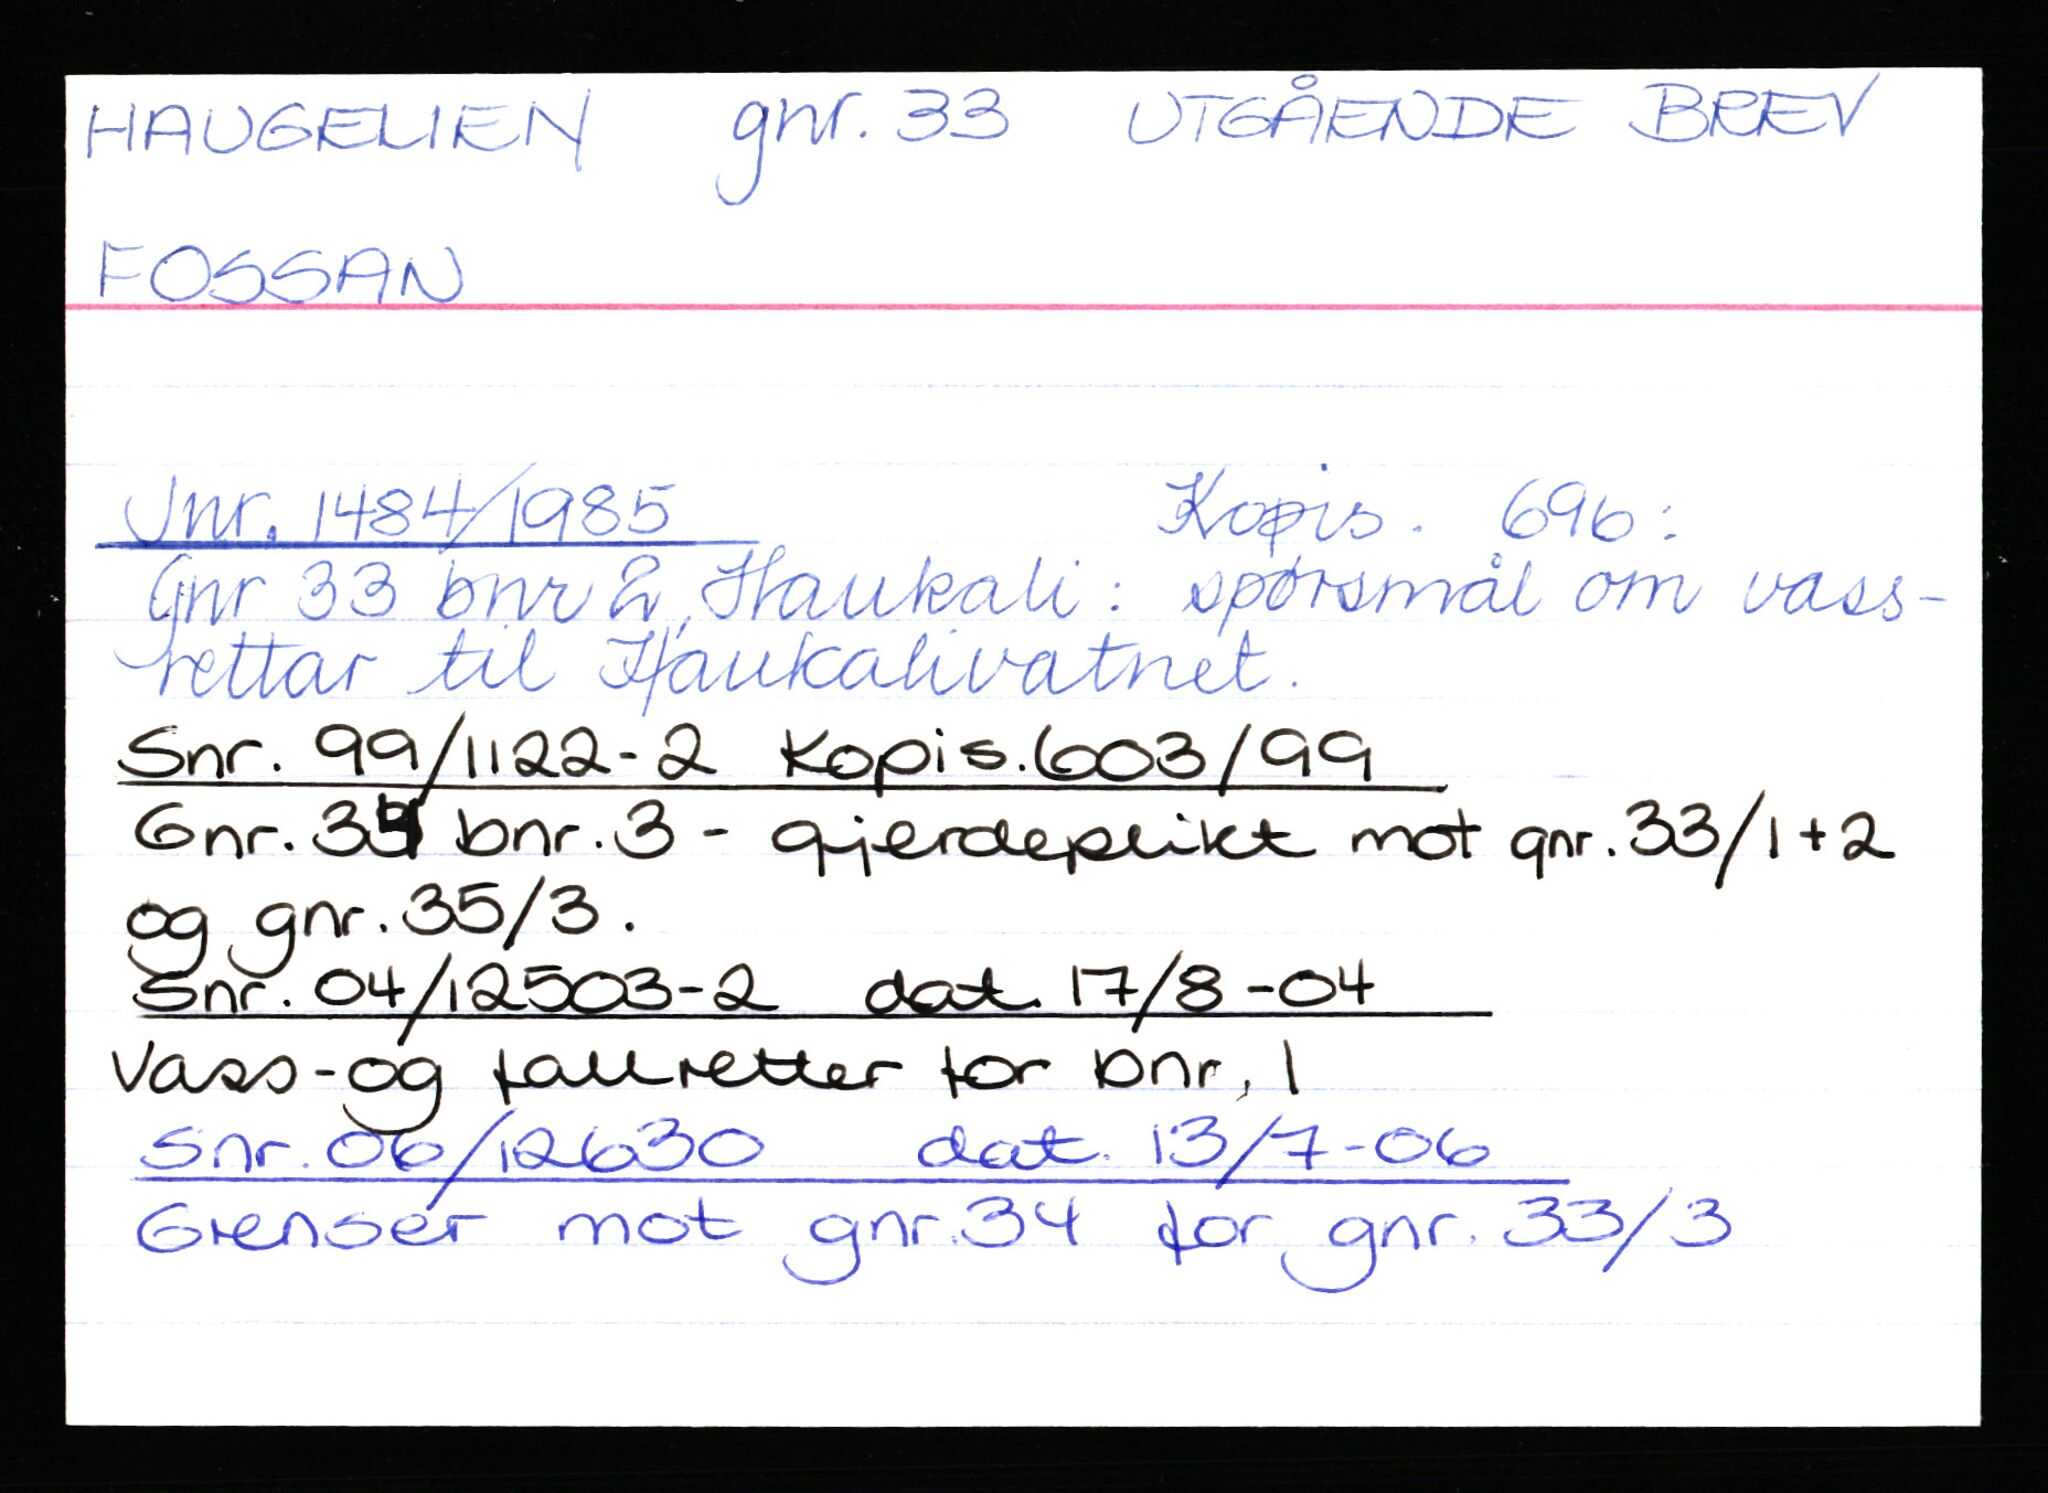 HAUGELIEN gnr. 33 UTGÅENDE BREV
FOSSAN
Jnr. 1484/1985 Kopis. 696:
Gnr 33 bnr 2, Haukali: spørsmål om vass-
rettar til Haukalivatnet.
Snr. 99/1122-2 Kopis. 603/99
Gnr. 34 bnr. 3 - gjerdeplikt mot gnr. 33/1+2
og gnr. 35/3.
Snr. 04/12503-2 dat. 17/8-04
Vass-og fallretter for bnr. 1
Snr. 06/12630 dat. 13/7-06
Grenser mot gnr. 34 for gnr. 33/3